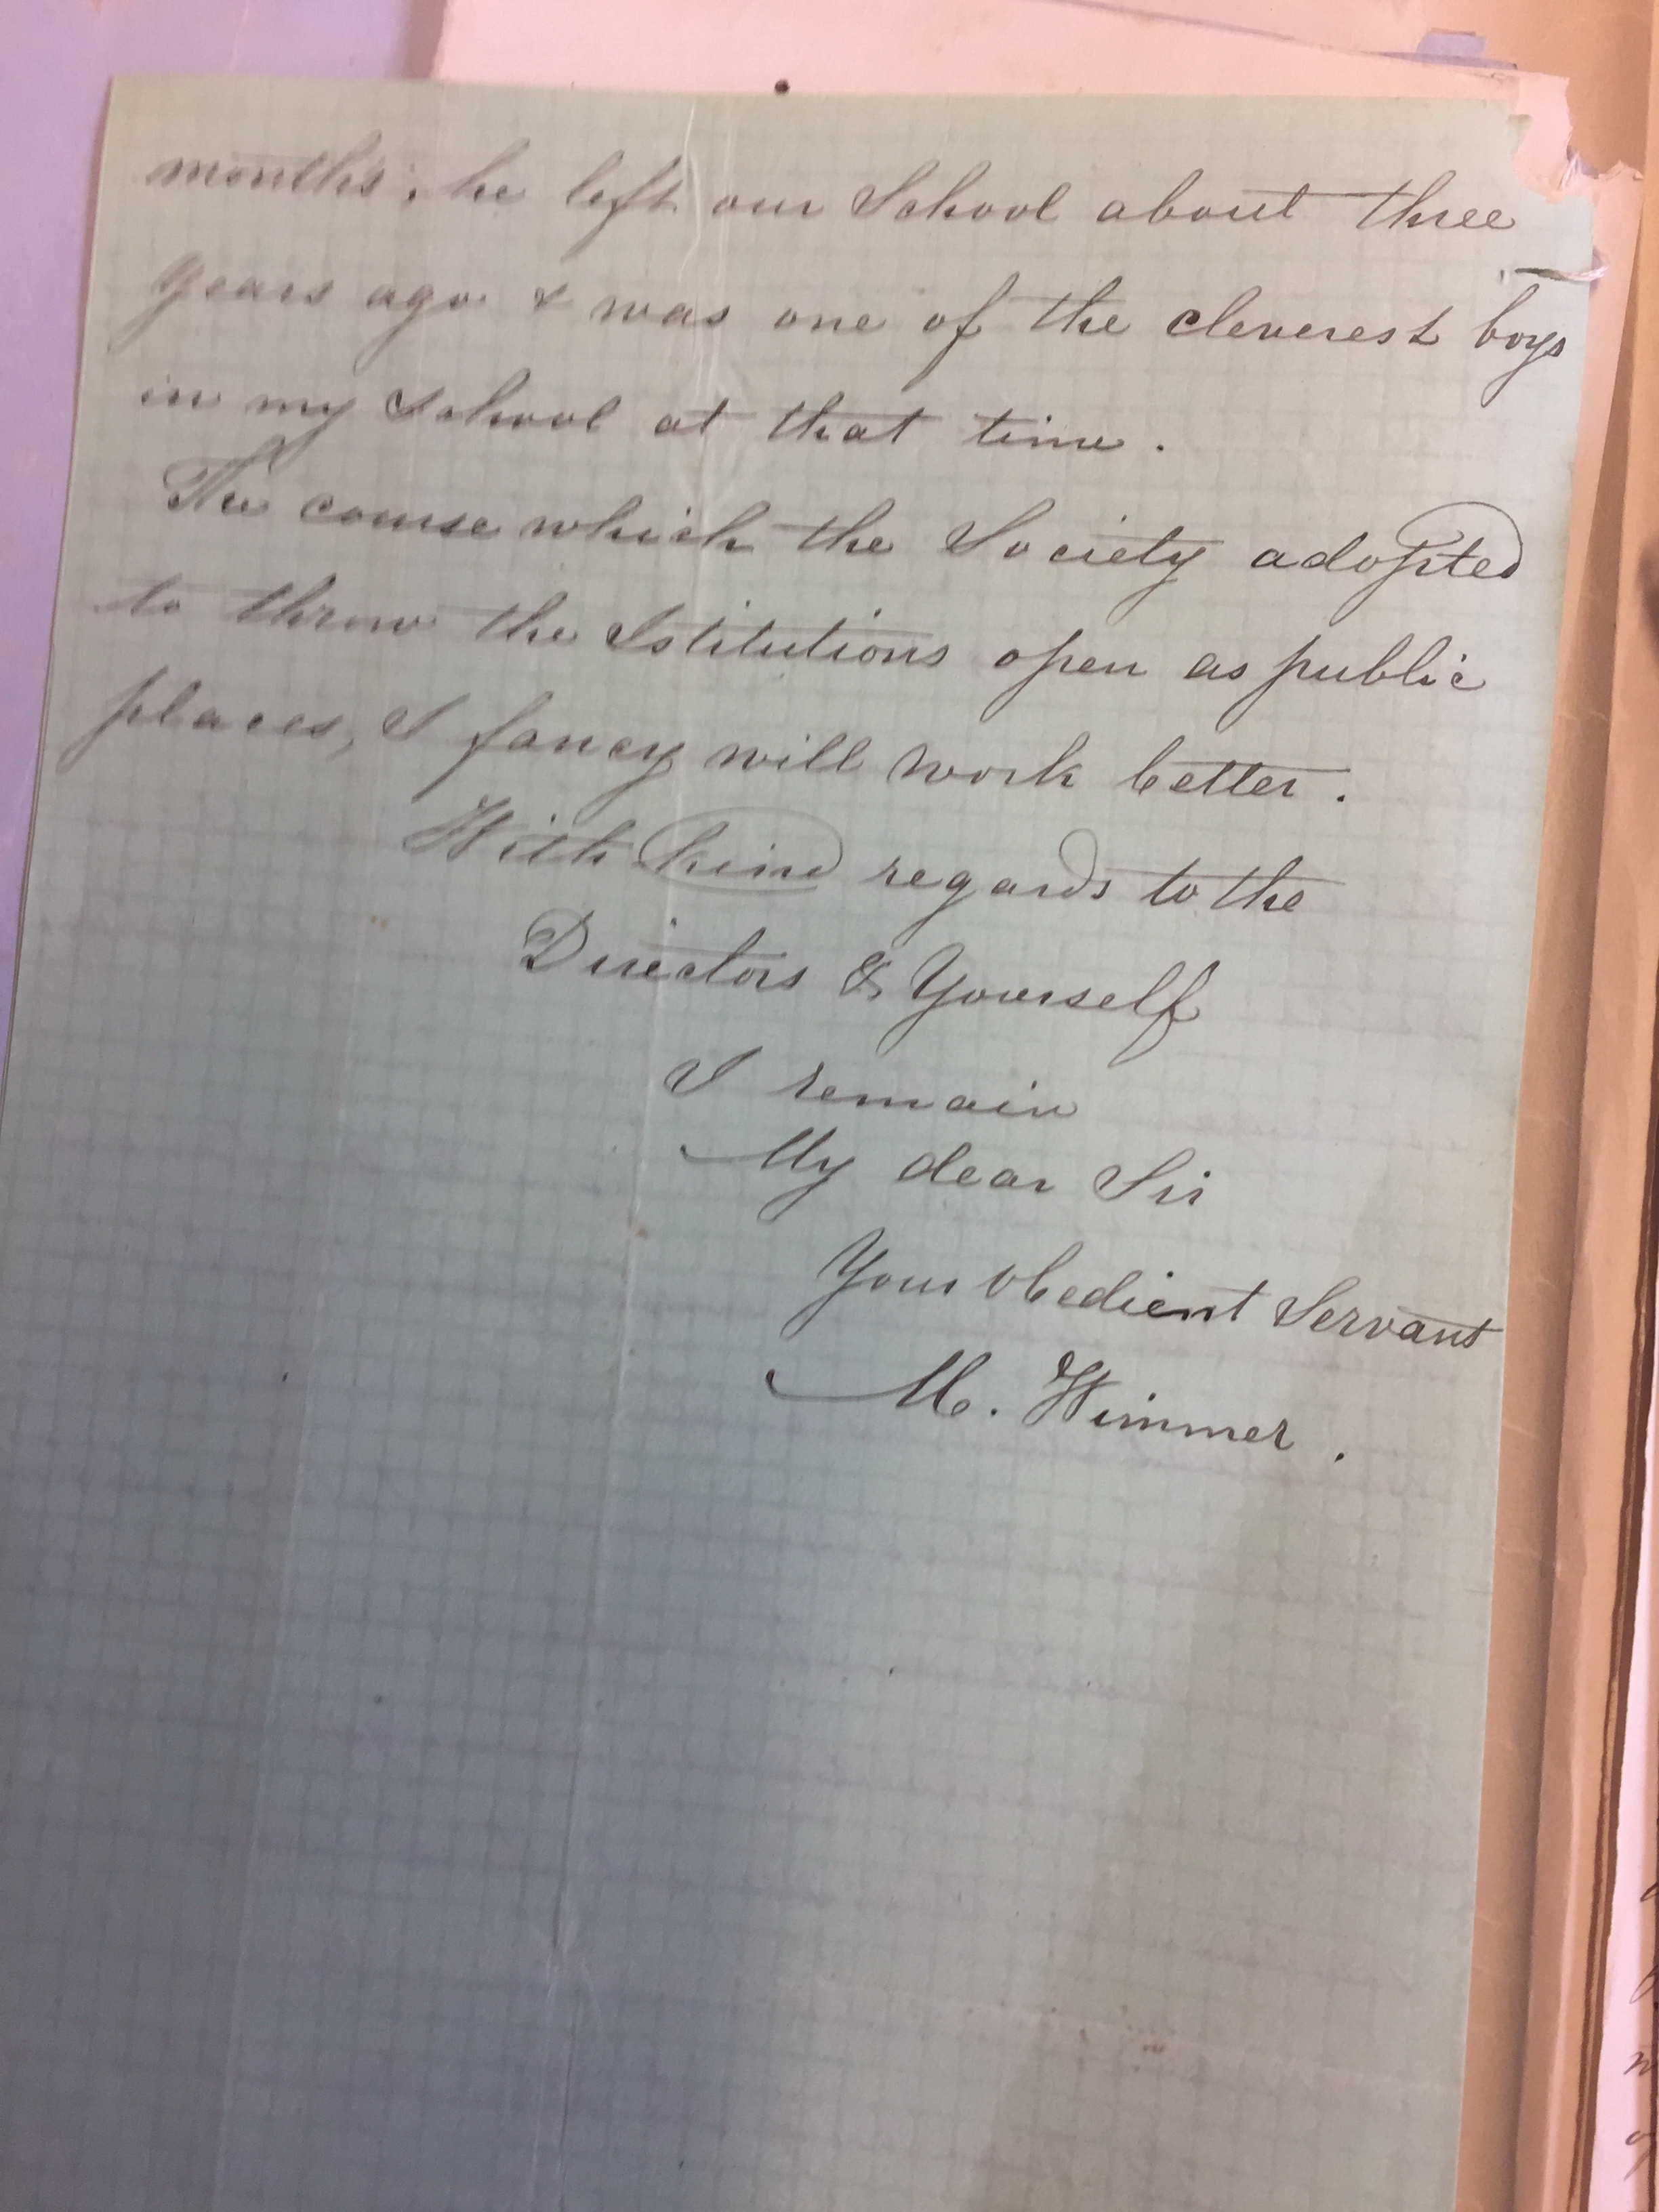 months; he left our School about three
years ago & was one of the cleverest boys
in my School at that time.
The course which the Society adopted
to throw the Istitutions open as public
places, I fancy will work better.
With kind regards to the
Directors & Yourself
I remain
My dear Sir
Your obedient Servant
M. Wimmer.